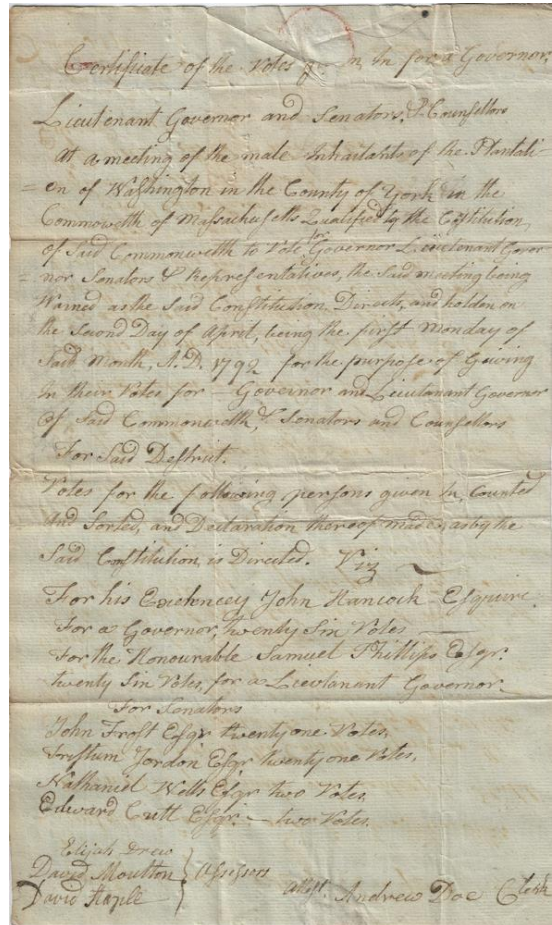 Certificate of the Votes given In for a Governor,
Lieutenant Governor and Senators, & Counsellors
At a meeting of the male Inhabitants of the Plantati-
=on of Washington in the County of York in the
Commowelth of Massachusetts Qualified by the Constitution
of Said Commonwelth to Vote for Governor Lieutenant Gover
=nor Senators & Representatives, the Said meeting being
Warned as the Said Constitution Directs, and holden on
the Second Day of April, being the first Monday of
Said Month, A.D. 1792 for the purpose of Giving
In their Votes for — Governor and Lieutenant Governor
Of Said Commonwelth, & Senators and Counsellors
For Said Destrict.
Votes for the following persons given In, Counted
And Sorted, and Declaration thereof made, as by the
Said Constitution, is Directed. Viz
For his Excelencey John Hancock Esquire.
For a Governor, twenty Six Votes
For the Honourable Samuel Phillips Esqr.
twenty Six Votes, for a Lieutanant Governor
For Senators
John Frost Esqr twenty one Votes,
Tristum Jordon Esqr twenty one Votes,
Nathaniel Wells Esqr two Votes
Edward Cutt Esqr. — two Votes.
Elijah Drew
David Moulton } Assessors
David Haple
Attest. Andrew Doe Clerk